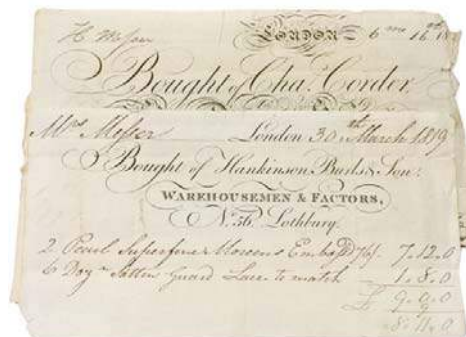 LONDON 6mo 16th 18
H Messer
Bought of Chas. Corder
Mrs Messer London 30th March 1819
Bought of Hankinson Burls & Son:
WAREHOUSEMEN & FACTORS,
No. 56, Lothbury.
2 Superfine Moreens Embosd 76/. 7.12.0
6 Doz Sattin Guard Lace to match 1.8.0
£ 9.0.0
9
8.11.0